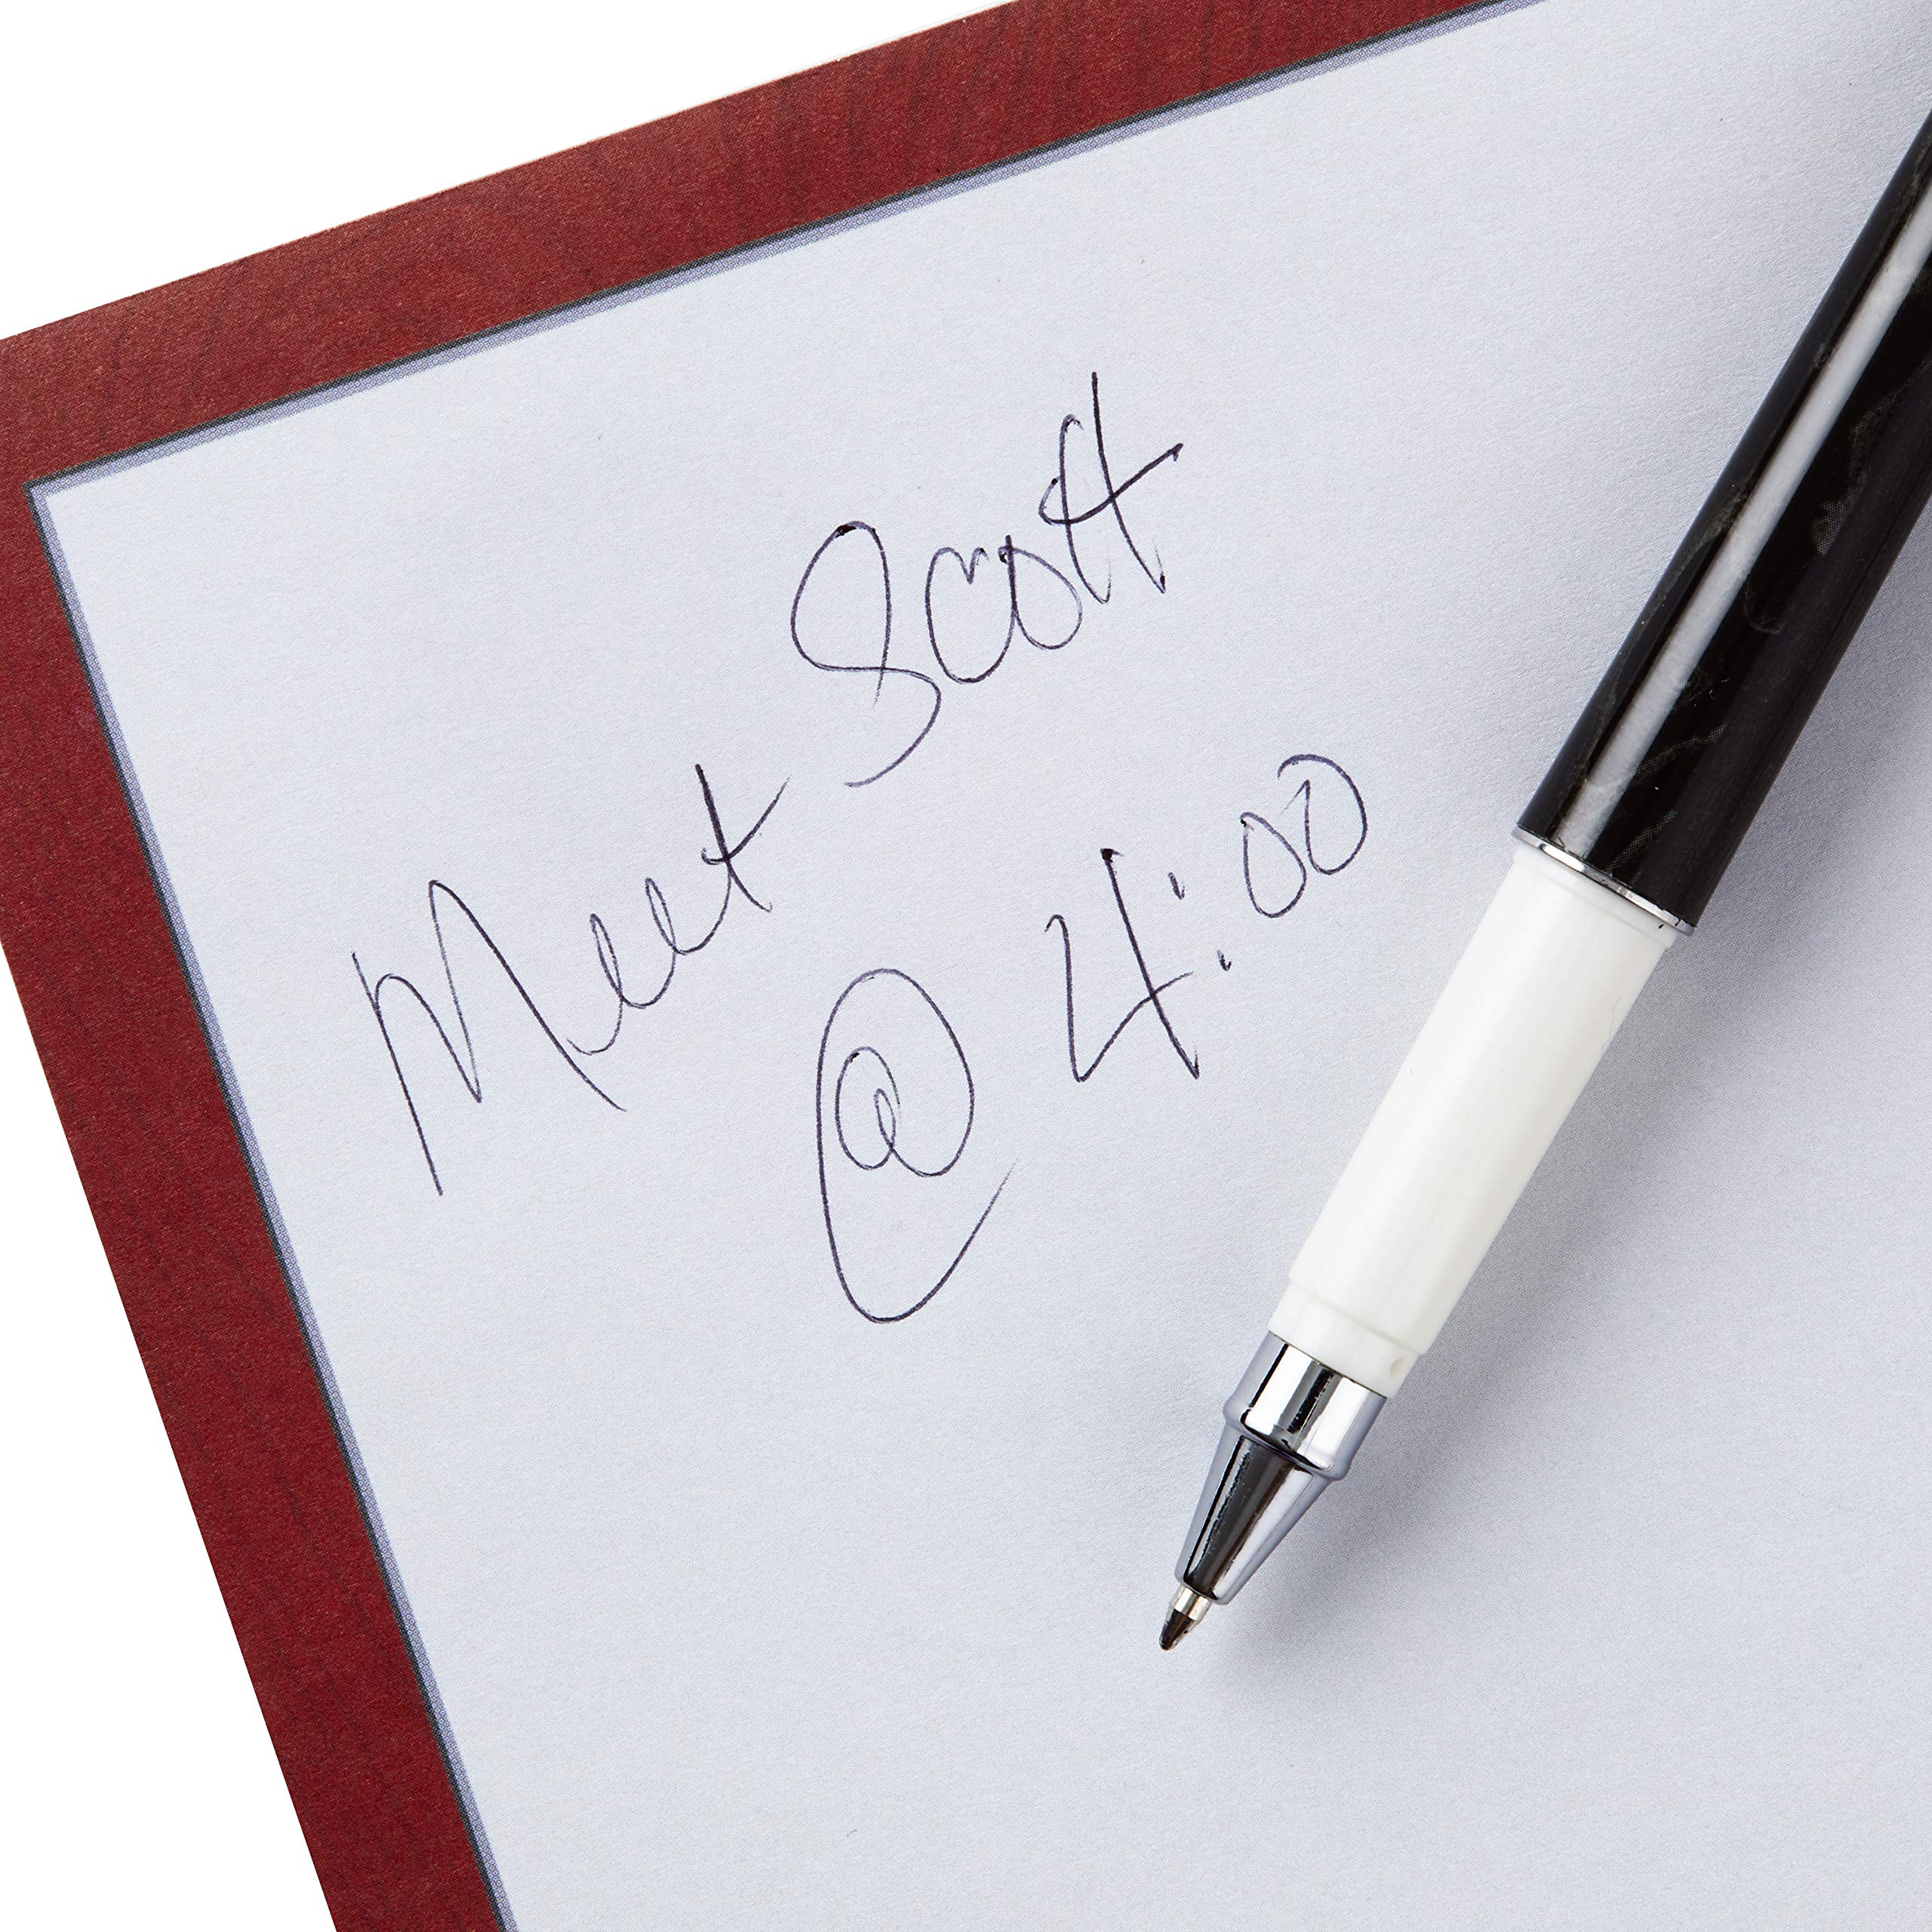 Meet Scott
@ 4:00